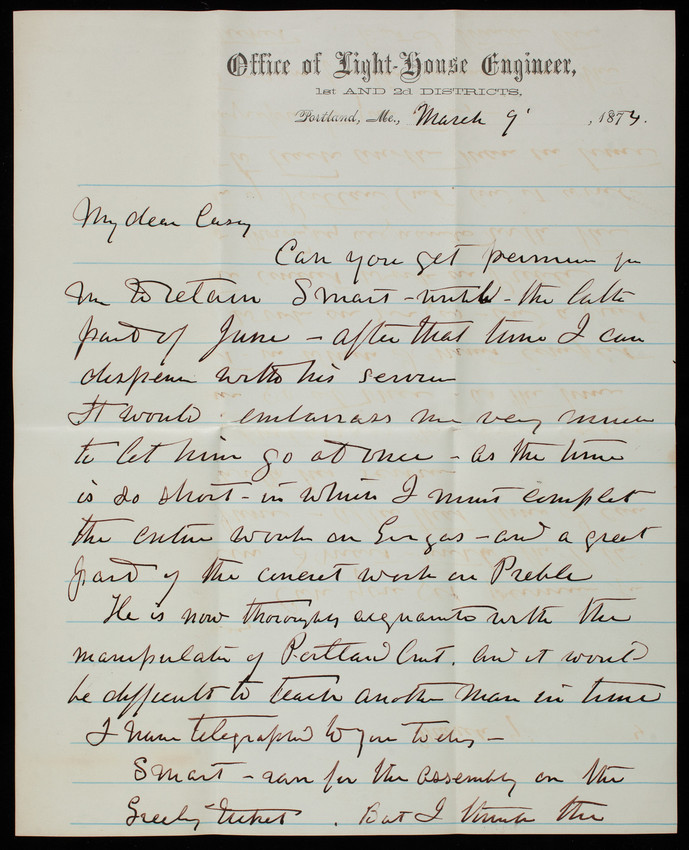 Office of Light-House Engineer,
1st AND 2d DISTRICTS,
Portland, Me., March 9 , 1874.
My dear Casey
Can you get permission for
me to retain Smart - until - the latter
part of June - after that time I can
dispense with his services
It would embarrass me very much
to let him go at once - as the time
is so short - in which I must complete
the entire work on Gorges - and a great
part of the concrete work on Preble
He is now thoroughly acquainted with the
manipulation of Portland Cmt. and it would
be difficult to teach another man in time
I have telegraphed to you today -
Smart - ran for the assembly on the
Greeley Ticket . But I think the